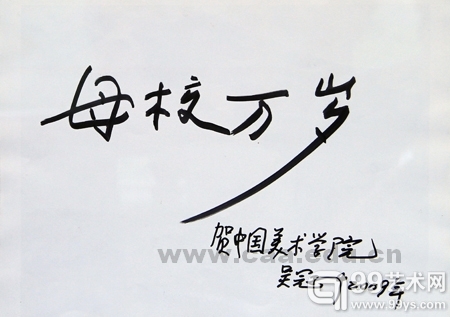 母校万岁
贺中国美术学院
www.caa.edu.cn
吴冠中2009年
99艺术网
www.99ys.com